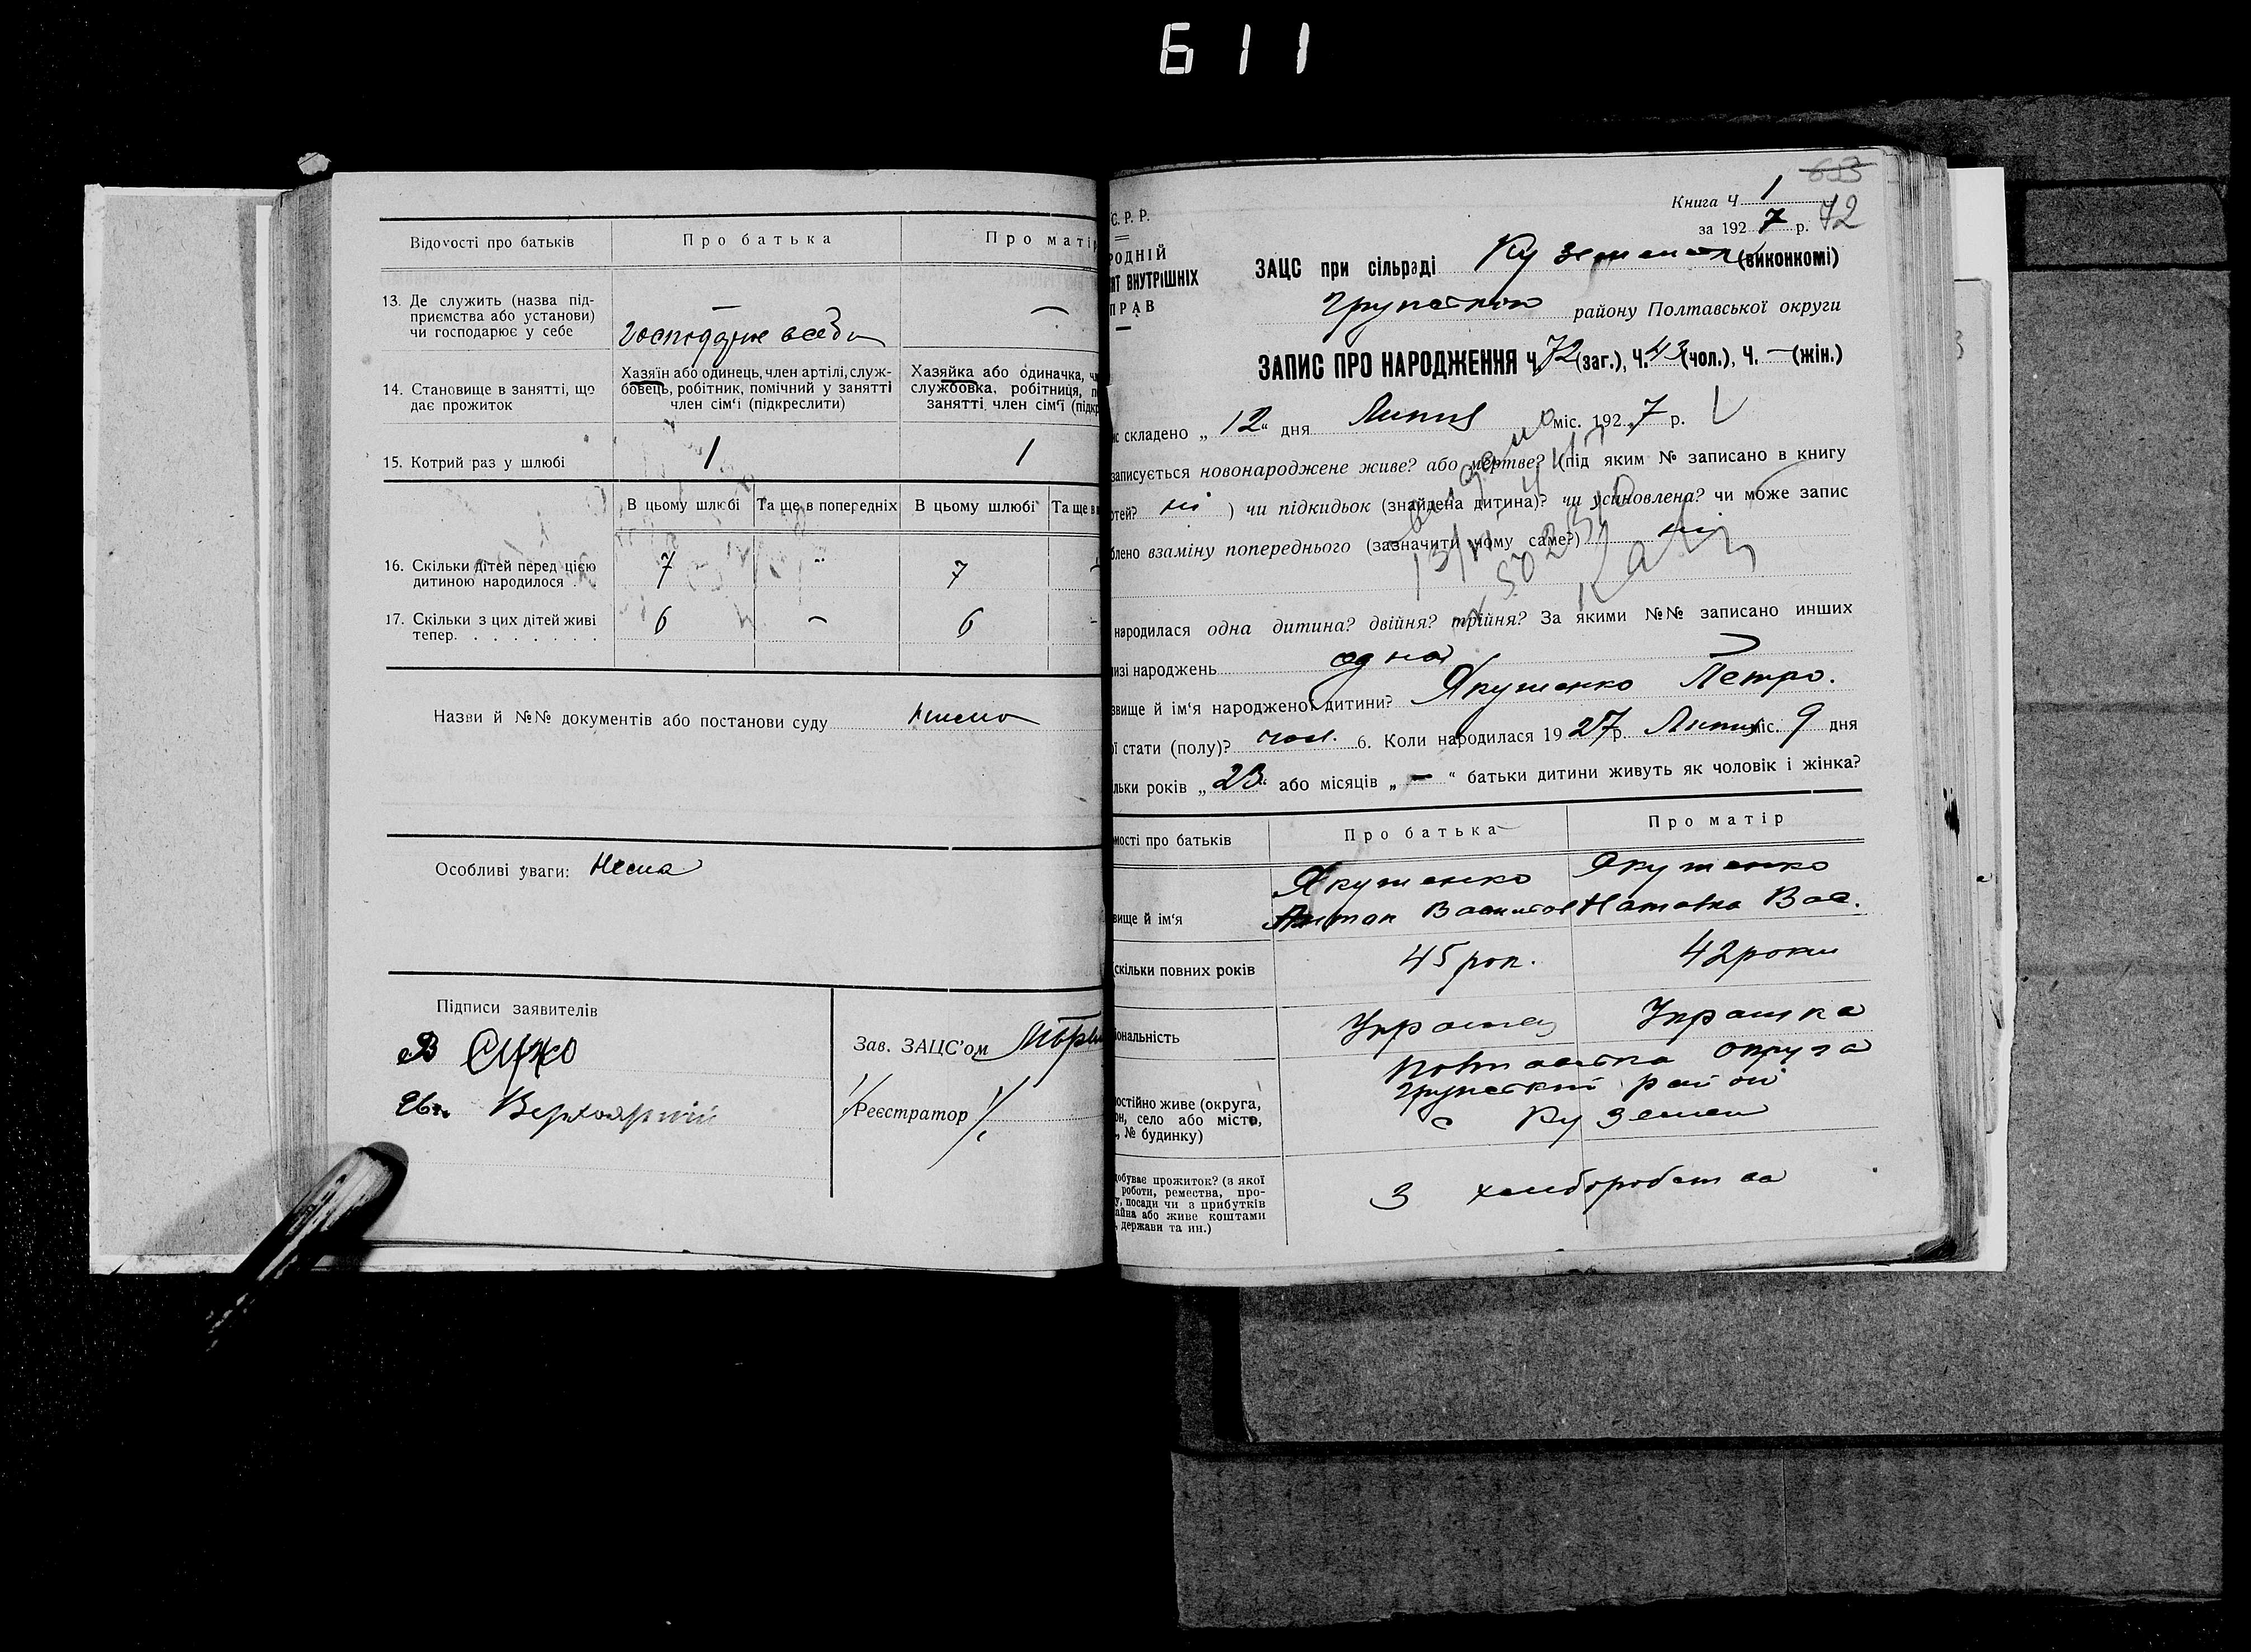 611
Відомості про батьків
Про батька
Про матір
13. Де служить (назва під-
приємства або установи)
чи господарює у себе
—
—
Господарює в себе
14. Становище в занятті, що
дає прожиток
Хазяїн або одинець, член артілі, служ-
бовець, робітник, помічний у занятті
член сім'ї (підкреслити)
Хазяйка або одиначка, ч
службовка, робітниця, п
занятті, член сім'ї (підкр
15. Котрий раз у шлюбі
1
1
В цьому шлюбі
Та ще в попередніх
В цьому шлюбі
Та ще в
16. Скільки дітей перед цією
дитиною народилося
7
7
17. Скільки з цих дітей живі
тепер . . . . . . .
6
—
6
Назви й №№ документів або постанови суду
Особливі уваги: Нема
Підписи заявителів
Зав. ЗАЦС'ом
Реєстратор
633
Книга Ч 1
72
за 1927 р.
С. Р. Р.
РОДНІЙ
АТ ВНУТРІШНІХ
ПРАВ
ЗАЦС при сільраді (виконкомі)
району Полтавської округи
ЗАПИС ПРО НАРОДЖЕННЯ Ч. 72 (заг.), Ч. 43 (чол.), Ч. — (жін.)
складено „12“ дня Липня міс. 1927 р.
записується новонароджене живе? або мертве? (під яким № записано в книгу
ртей? ні ) чи підкидьок (знайдена дитина)? чи усиновлена? чи може запис
блено взаміну попереднього (зазначити чому саме?) ні
народилася одна дитина? двійня? трійня? За якими №№ записано инших
изі народжень одна
звище й ім'я народженої дитини? Якушенко Петро.
ої стати (полу)? чол. 6. Коли народилася 1927 р. Липня міс. 9 дня
льки років „23“ або місяців „—“ батьки дитини живуть як чоловік і жінка?
мості про батьків
Про батька
Про матір
вище й ім'я
Якушенко
Якушенко
Антон
Вас.
скільки повних років
45 рок.
42 роки
іональність
Українка
Полтавська округа
район
остійно живе (округа,
он, село або місто,
, № будинку)
с
добуває прожиток? (з якої
роботи, ремества, про-
у, посади чи з прибутків
айна або живе коштами
, держави та ин.)
З хліборобства